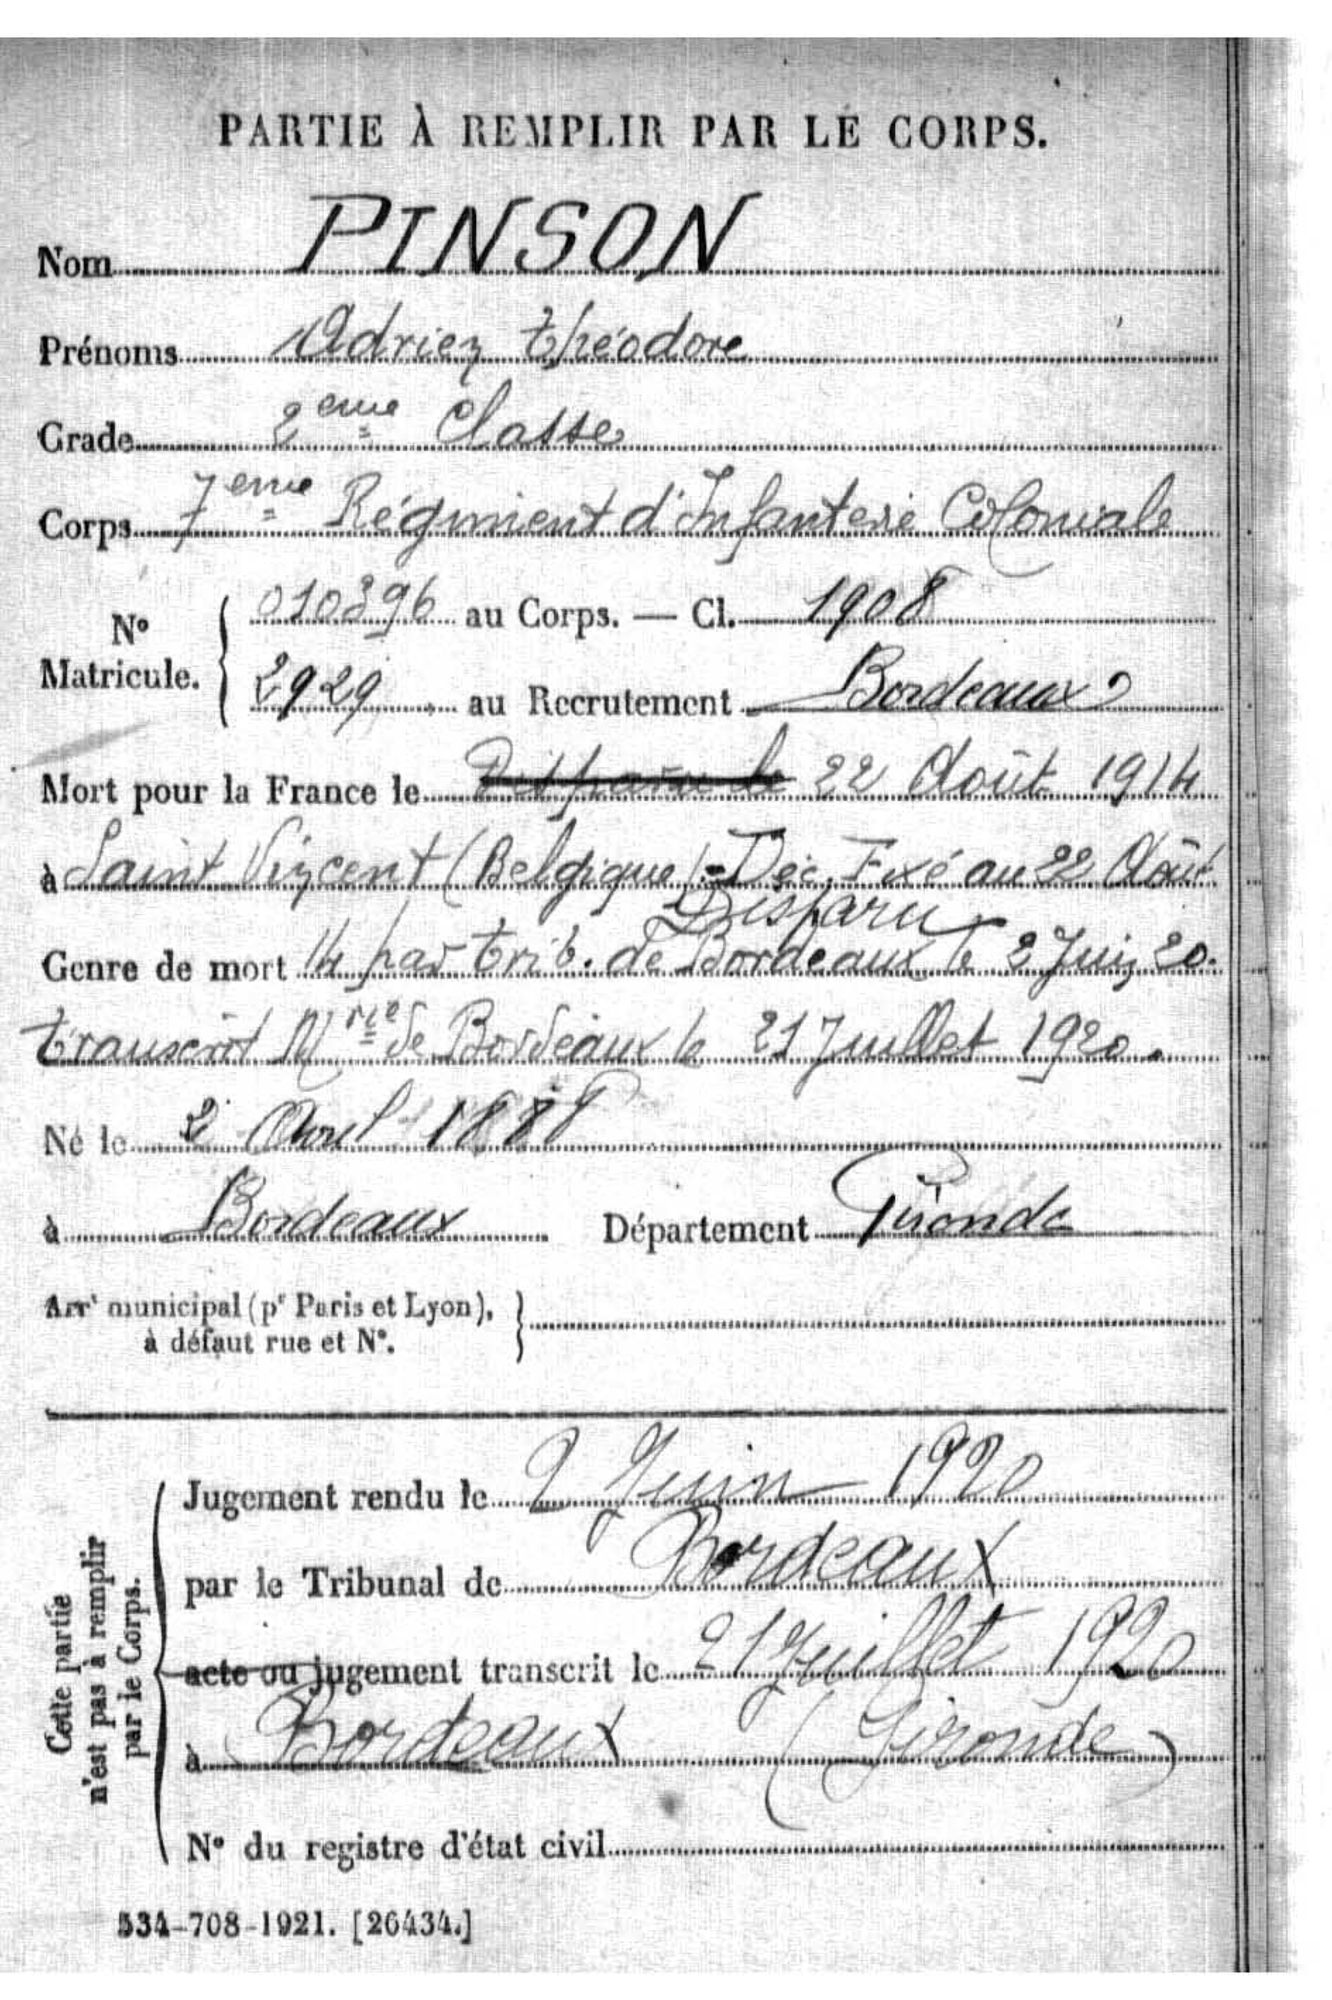 PARTIE À REMPLIR PAR LE CORPS.
Nom PINSON
Prénoms Adrien théodore
Grade 2eme Classe
Corps 7eme Régiment d'Infanterie Coloniale
N° Matricule. 010396 au Corps. — Cl. 1908
2929 au Recrutement Bordeaux
Mort pour la France le Disparu le 22 Août 1914
à Saint Vincent (Belgique) - Déc. Fixé au 22 Août
Disparu
Genre de mort 14 par trib. de Bordeaux le 2 Juin 20.
transcrit Mrie de Bordeaux le 21 Juillet 1920.
Né le 2 Avril 1888
à Bordeaux Département Gironde
Arrt municipal (pr Paris et Lyon),
à défaut rue et N°.
Cette partie
n'est pas à remplir
par le Corps.
Jugement rendu le 2 Juin 1920
par le Tribunal de Bordeaux
acte ou jugement transcrit le 21 Juillet 1920
à Bordeaux (Gironde)
N° du registre d'état civil
534-708-1921. [26434.]